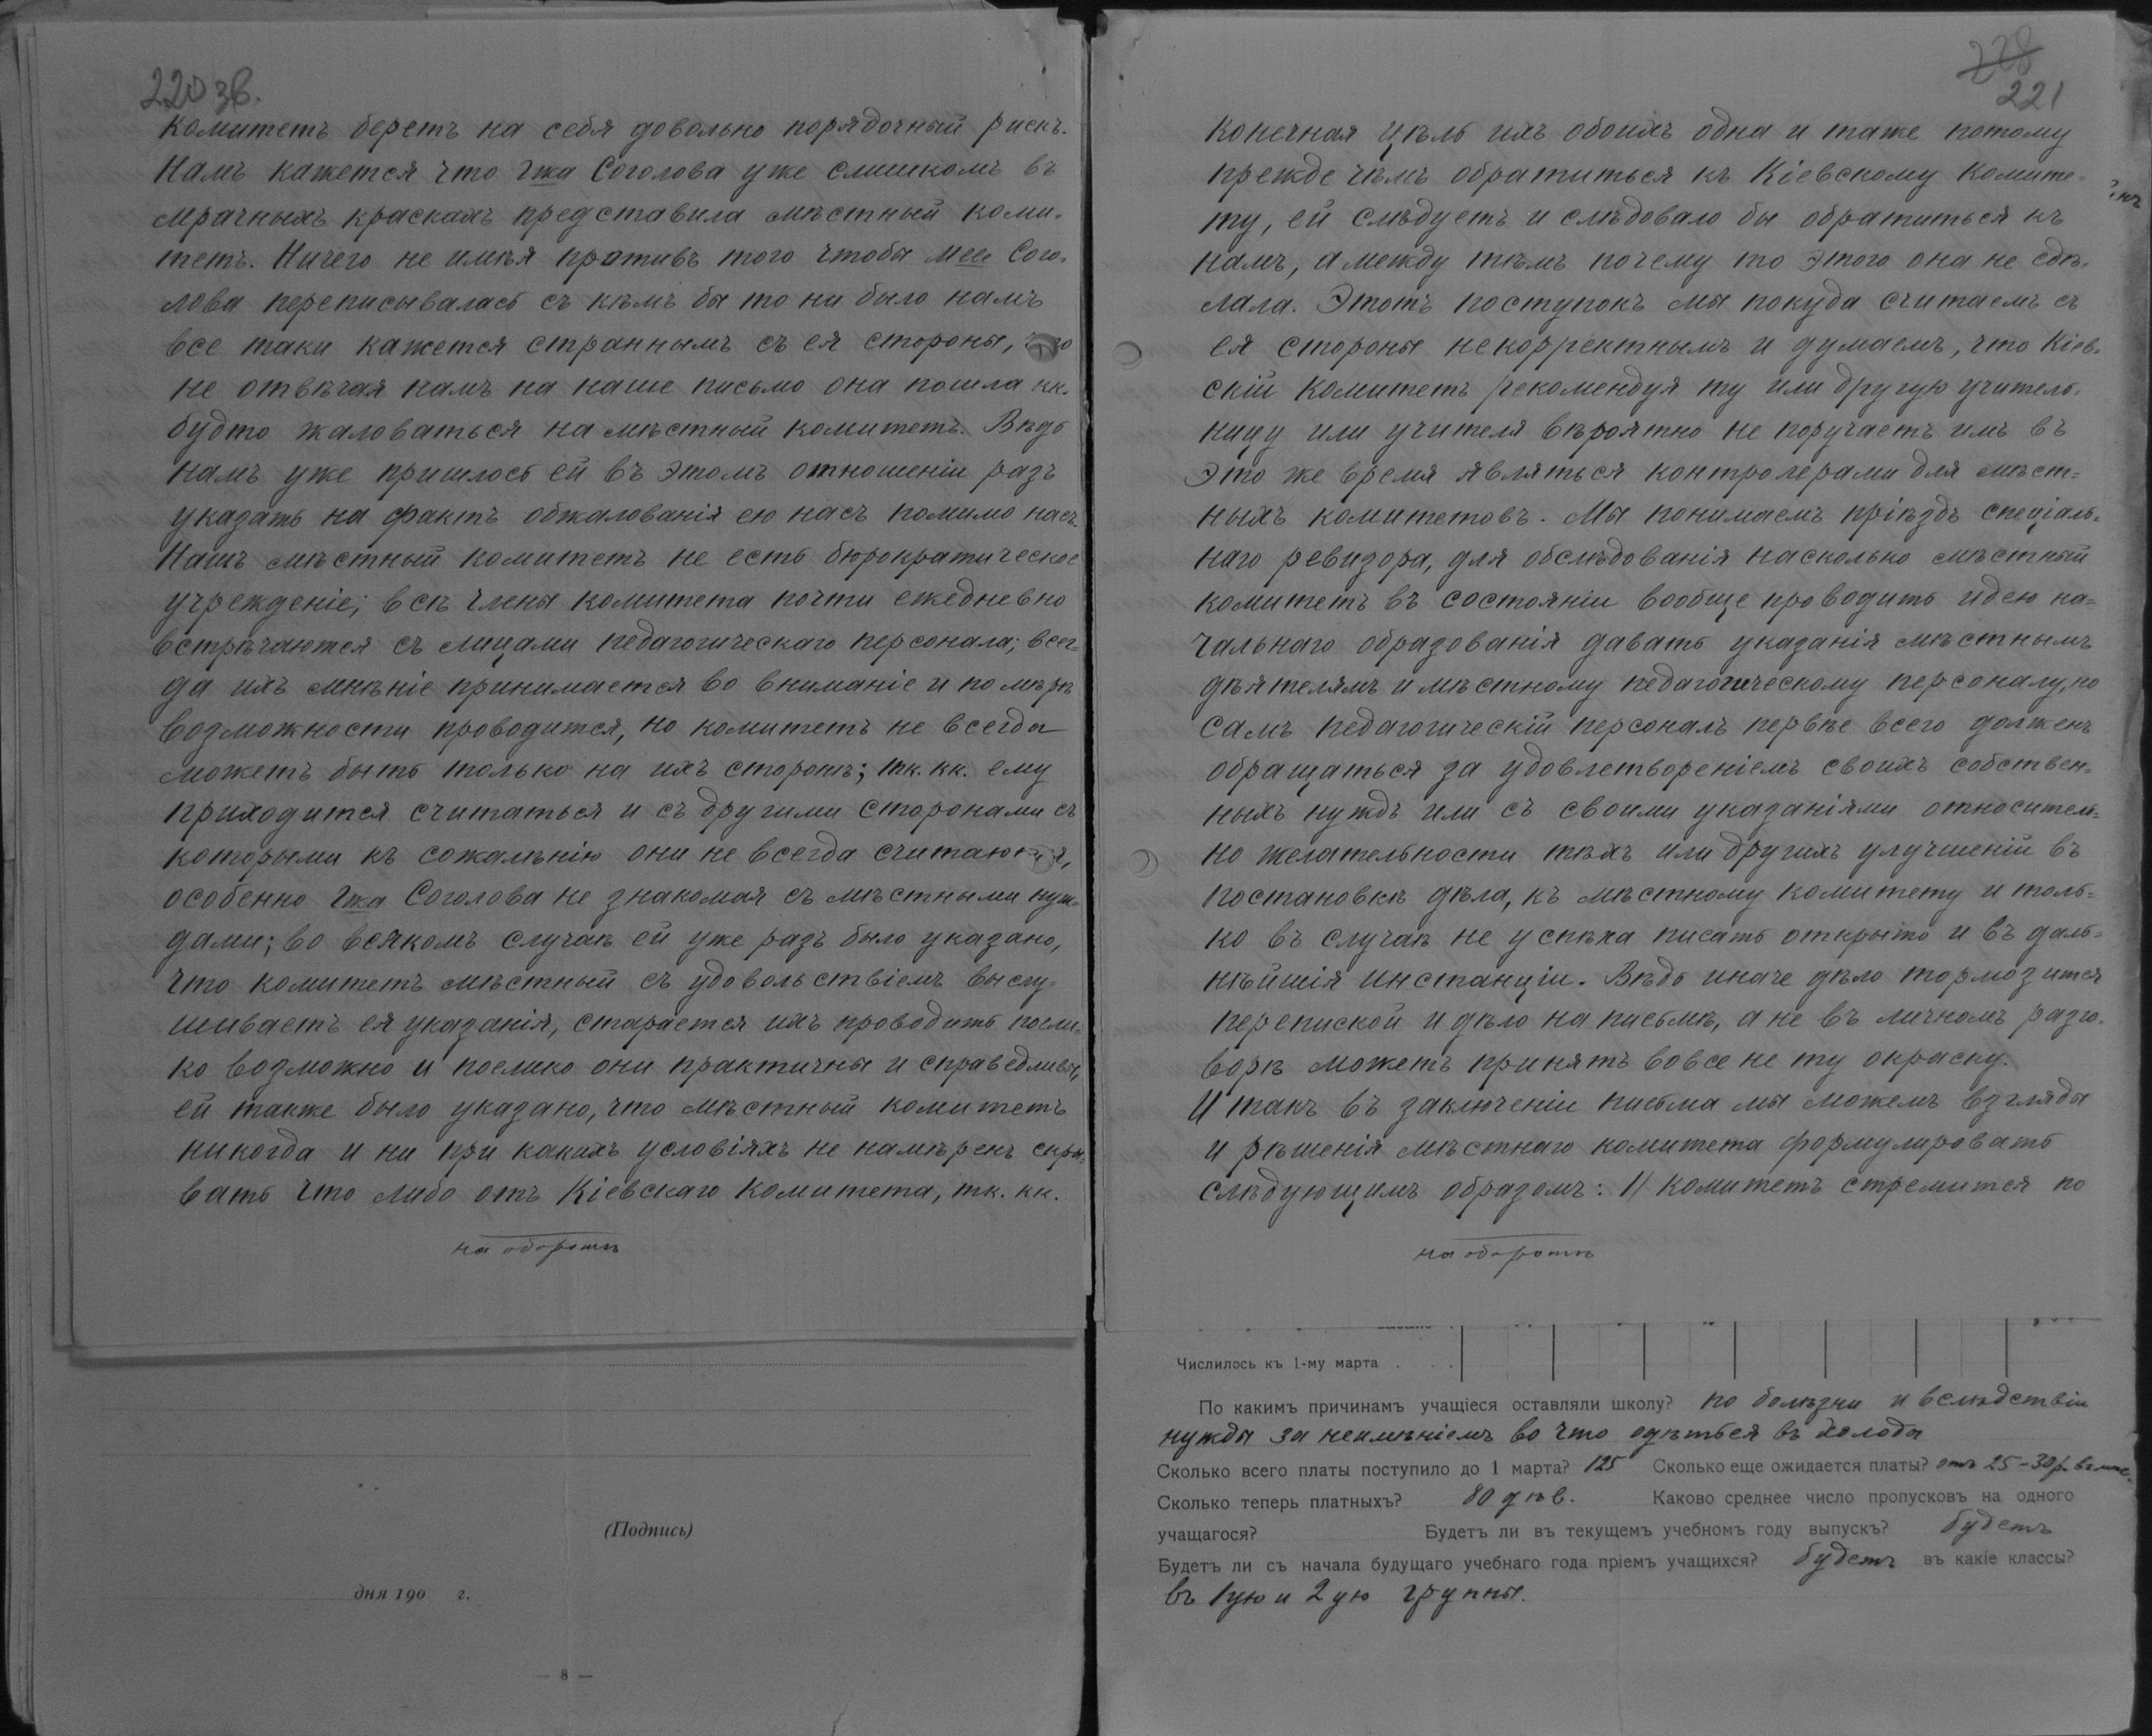 220 зв.
комитетъ беретъ на себя довольно порядочный рискъ.
Намъ кажется что Гжа Соголова уже слишкомъ въ
мрачныхъ краскахъ представила мѣстный коми-
тетъ. Ничего не имѣя противъ того чтобы Mlle Сого-
лова переписывалась съ кѣмъ бы то ни было намъ
все таки кажется страннымъ съ ея стороны,
не отвѣчая намъ на наше письмо она пошла кк.
будто жаловаться на мѣстный комитетъ. Вѣдь
намъ уже пришлось ей въ этомъ отношеніи разъ
указать на фактъ обжалованія ею насъ помимо насъ.
Нашъ мѣстный комитетъ не есть бюрократическое
учрежденіе; всѣ члены комитета почти ежедневно
встрѣчаются съ лицами педагогическаго персонала; всег-
да ихъ мнѣніе принимается во вниманіе и по мѣрѣ
возможности проводится, но комитетъ не всегда
можетъ быть только на ихъ сторонѣ; тк. кк. ему
приходится считаться и съ другими сторонами съ
которыми къ сожалѣнію они не всегда считаются,
особенно Гжа Соголова не знакомая съ мѣстными нуж-
дами; во всякомъ случаѣ ей уже разъ было указано,
что комитетъ мѣстный съ удовольствіемъ выслу-
шиваетъ ея указанія, старается ихъ проводить посли-
ко возможно и поелико они практичны и справедливы,
ей также было указано, что мѣстный комитетъ
никогда и ни при какихъ условіяхъ не намѣренъ скры-
вать что либо отъ Кіевскаго Комитета, тк. кк.
на оборотѣ
(Подпись)
дня 190 г.
— 8 —
228
221
Конечная цѣль ихъ обоихъ одна и таже потому
прежде чѣмъ обратиться къ Кіевскому Комите-
ту, ей слѣдуетъ и слѣдовало бы обратиться къ
намъ, а между тѣмъ почему то этого она не сдѣ-
лала. Этотъ поступокъ мы покуда считаемъ съ
ея стороны некорректнымъ и думаемъ, что Кіев-
скій Комитетъ рекомендуя ту или другую учитель-
ницу или учителя вѣроятно не поручаетъ имъ въ
это же время являться контролерами для мѣст-
ныхъ комитетовъ. Мы понимаемъ пріѣздъ спеціаль-
наго ревизора, для обслѣдованія насколько мѣстный
комитетъ въ состояніи вообще проводить идею на-
чальнаго образованія давать указанія мѣстнымъ
дѣятелямъ и мѣстному педагогическому персоналу, но
самъ педагогическій персоналъ первѣе всего долженъ
обращаться за удовлетвореніемъ своихъ собствен-
ныхъ нуждъ или съ своими указаніями относитель-
но желательности тѣхъ или другихъ улучшеній въ
постановкѣ дѣла, къ мѣстному комитету и толь-
ко въ случаѣ не успѣха писать открыто и въ даль-
нѣйшія инстанціи. Вѣдь иначе дѣло тормозится
перепиской и дѣло на письмѣ, а не въ личномъ разго-
ворѣ можетъ принять вовсе не ту окраску.
И такъ въ заключеніи письма мы можемъ взгляды
и рѣшенія мѣстнаго комитета формулировать
слѣдующимъ образомъ: 1/ комитетъ стремится по
на оборотѣ
Числилось къ 1-му марта . . .
По какимъ причинамъ учащіеся оставляли школу? по болѣзни и вслѣдствіи
нужды за неимѣніемъ во что одѣться въ холода
Сколько всего платы поступило до 1 марта? 125 Сколько еще ожидается платы? отъ 25-30 р. въ мѣс.
Сколько теперь платныхъ? 80 дѣв. Каково среднее число пропусковъ на одного
учащагося? Будетъ ли въ текущемъ учебномъ году выпускъ? будетъ
Будетъ ли съ начала будущаго учебнаго года пріемъ учащихся? будетъ въ какіе классы?
въ 1ую и 2ую группы.